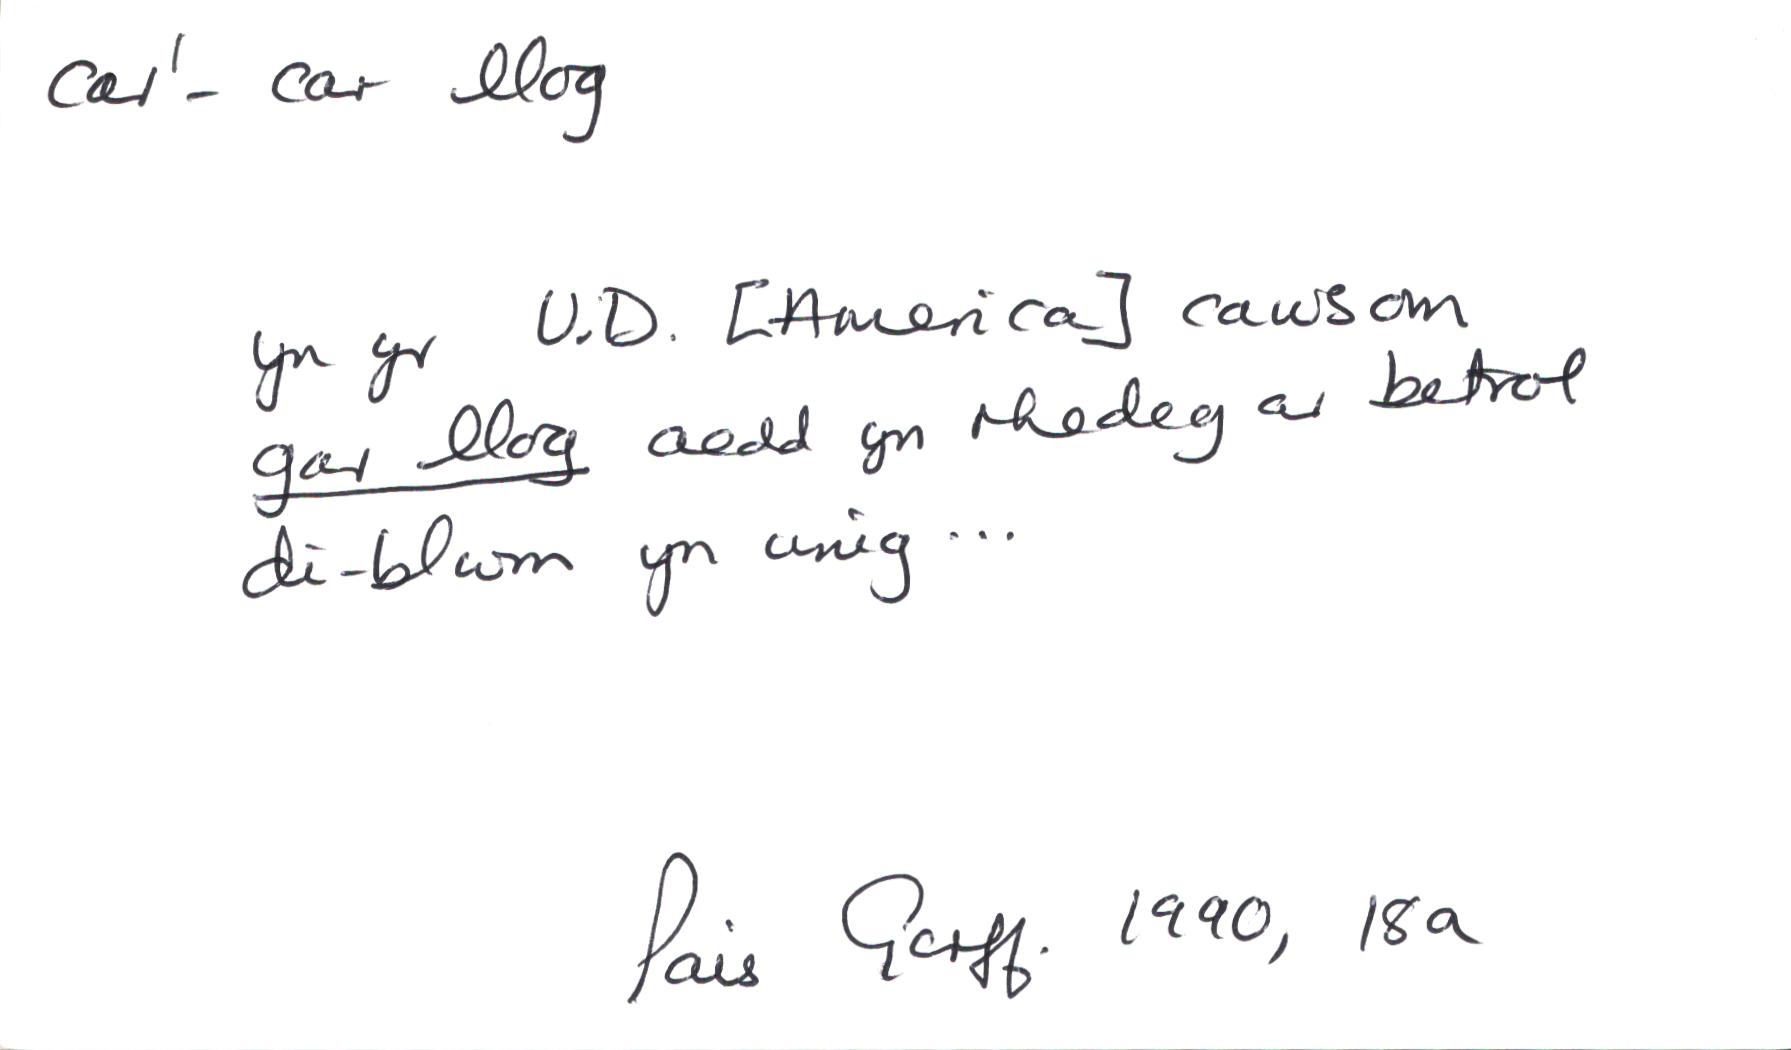 car¹- car llog
yn yr U.D. [America] cawsom
gar llog oedd yn rhedeg ar betrol
di-blwm yn unig ...
Pais Gorff. 1990, 18a